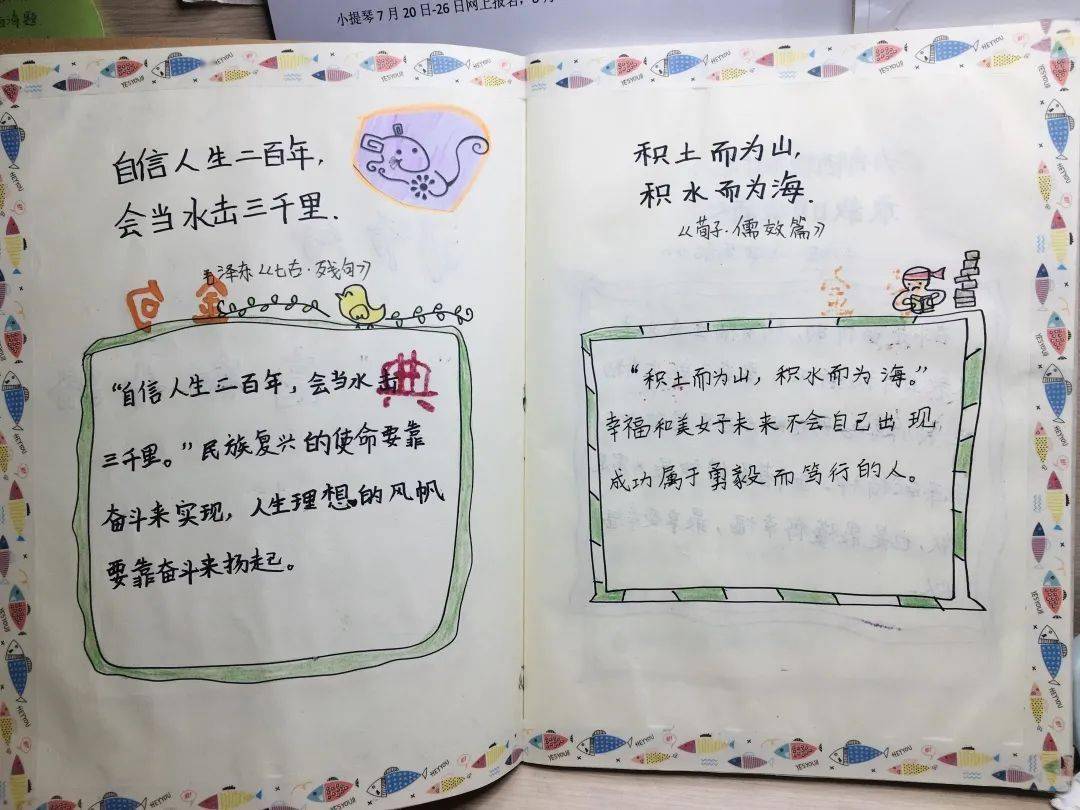 小提琴7月20日-26日网上报名,
自信人生二百年,
会当水击三千里.
毛泽东《七古·残句》
句 金
典
“自信人生二百年,会当水击
三千里。”民族复兴的使命要靠
奋斗来实现,人生理想的风帆
要靠奋斗来扬起。
积土而为山,
积水而为海.
《荀子·儒效篇》
金
“积土而为山,积水而为海。”
幸福和美女子未来不会自己出现
成功属于勇毅而笃行的人。
HEYYOU
YESYOU!!